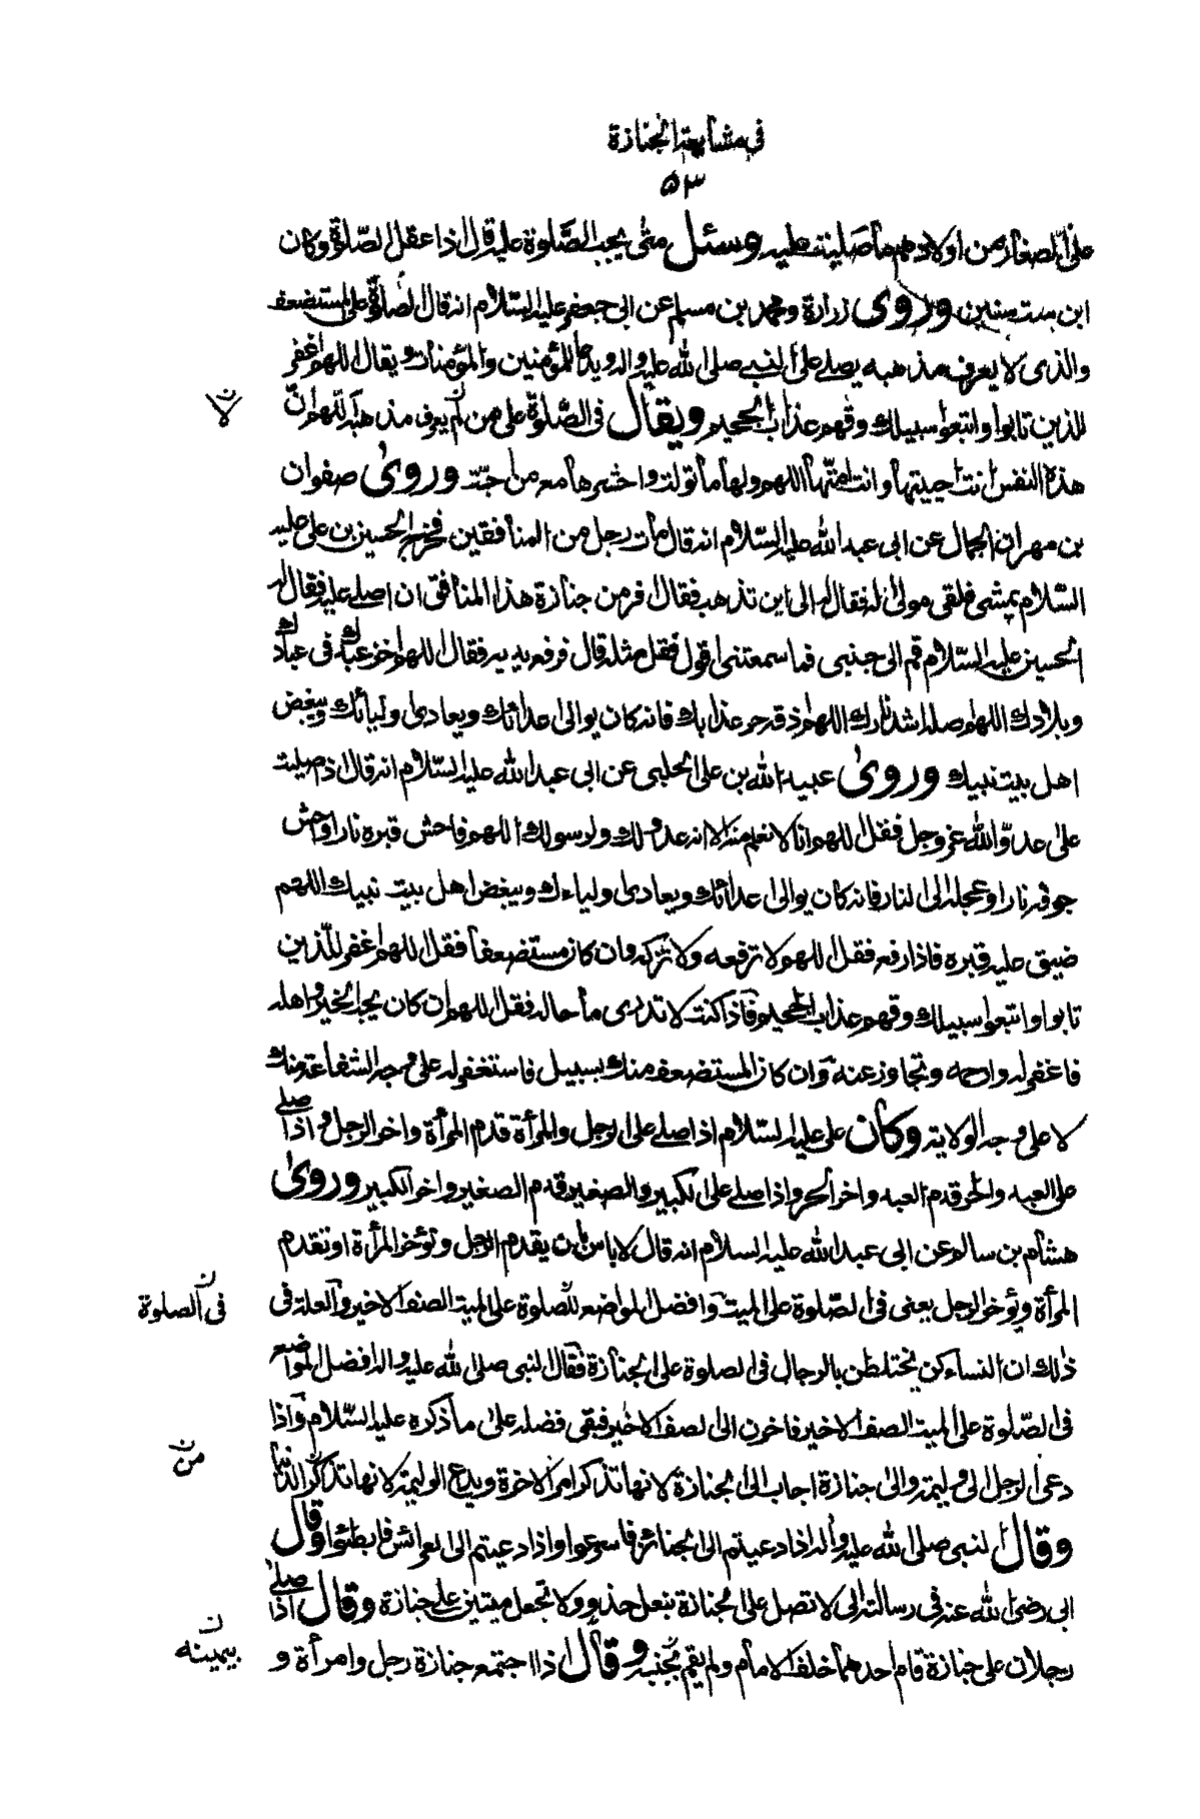 في مشايعة الجنازة
٥٣
على الصغار من اولادهم ما صليت عليه وسئل متى يجب الصّلوة عليه قال اذا عقل الصّلوة وكان
ابن ست سنين وروى زرارة ومحمد بن مسلم عن ابى جعفر عليه السّلام انه قال الصّلوة على المستضعف
والذى لا يعرف مذهبه يصلى على النبى صلى الله عليه واله ويدعا للمؤمنين والمؤمنات ويقال اللهم اغفر
للذين تابوا واتبعوا سبيلك وقهم عذاب الجحيم ويقال فى الصّلوة على من لم يعرف مذهبه اللهم ان
لا ن
هذه النفس انت احييتها وانت امتّها اللهم ولها ما تولت واحشرها مع من احبّت وروى صفوان
بن مهران الجمال عن ابى عبد الله عليه السّلام انه قال مات رجل من المنافقين فخرج الحسين بن على عليه
السّلام يمشى فلقى مولى له فقال له الى اين تذهب فقال افر من جنازة هذا المنافق ان اصلى عليه فقال له
الحسين عليه السّلام قم الى جنبى فما سمعتنى اقول فقل مثله قال فرفع يديه فقال اللهم اخز عبدك فى عبادك
وبلادك اللهم اصله اشد نارك اللهم اذقه حر عذابك فانه كان يوالى اعدائك ويعادى اوليائك ويبغض
اهل بيت نبيك وروى عبيد الله بن على الحلبى عن ابى عبد الله عليه السّلام انه قال اذا صليت
على عدوّ الله عز وجل فقل اللهم انا لا نعلم منه الا انه عدو لك ولرسولك اللهم فاحش قبره نارا واحش
جوفه نارا وعجله الى النار فانه كان يوالى اعدائك ويعادى اولياءك ويبغض اهل بيت نبيك اللهم
ضيق عليه قبره فاذا رفع فقل اللهم لا ترفعه ولا تزكه وان كان مستضعفا فقل اللهم اغفر للّذين
تابوا واتبعوا سبيلك وقهم عذاب الجحيم فاذا كنت لا تدرى ما حاله فقل اللهم ان كان يحب الخير واهله
فاغفر له وارحمه وتجاوز عنه وان كان المستضعف منك بسبيل فاستغفر له على وجه الشفاعة منك
لا على وجه الولاية وكان على عليه السّلام اذا صلى على الرجل والمرأة قدم المرأة واخر الرجل واذا صلى
على العبد والحر قدم العبد واخر الحر واذا صلى على الكبير والصغير قدم الصغير واخر الكبير وروى
هشام بن سالم عن ابى عبد الله عليه السلام انه قال لا باس بان يقدم الرجل وتؤخر المرأة او تقدم
المرأة ويؤخر الرجل يعنى فى الصّلوة على الميت وافضل المواضع للصّلوة على الميت الصف الاخير والعلة فى
فى الصلوة ن
ذلك ان النساء كن يختلطن بالرجال فى الصلوة على الجنازة فقال النبى صلى الله عليه واله افضل المواضع
فى الصّلوة على الميت الصف الاخير فتاخرن الى الصف الاخير فبقى فضله على ما ذكره عليه السّلام واذا
دعى الرجل الى وليمة والى جنازة اجاب الى الجنازة لانها تذكر امر الاخرة ويدع الوليمة لانها تذكر الدنيا
من ن
وقال النبى صلى الله عليه واله اذا دعيتم الى الجنائز فاسرعوا واذا دعيتم الى العرائس فابطئوا وقال
ابى رضى الله عنه فى رسالته الى لا تصل على الجنازة بنعل حذو ولا تجعل ميتين على جنازة وقال اذا صلى
رجلان على جنازة قام احدهما خلف الامام ولم يقم بجنبه وقال اذا اجتمع جنازة رجل وامرأة و
بيمينه ن